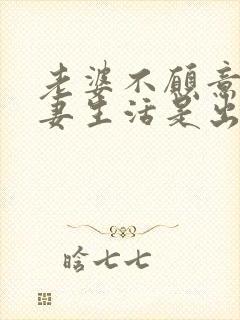 老婆不愿意
妻生活是出
啥七七